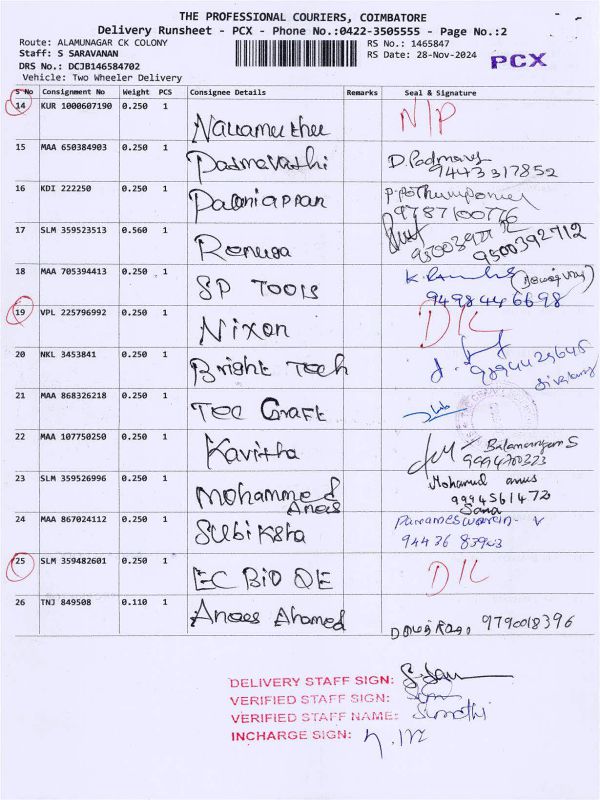 THE PROFESSIONAL COURIERS, COIMBATORE
Delivery Runsheet - PCX - Phone No.:0422-3505555 - Page No.:2
Route: ALAMUNAGAR CK COLONY
Staff: S SARAVANAN
DRS No.: DCJB146584702
Vehicle: Two Wheeler Delivery
RS No.: 1465847
RS Date: 28-Nov-2024
PCX
S No Consignment No Weight PCS Consignee Details Remarks Seal & Signature
14 KUR 1000607190 0.250 1
15 MAA 650384903 0.250 1 Padmavathi
9443317852
16 KDI 222250 0.250 1 Palaniappan
9787100776
17 SLM 359523513 0.560 1
9500392712
18 MAA 705394413 0.250 1 SP TOOLS
9498446698
19 VPL 225796992 0.250 1 Nixon D/L
20 NKL 3453841 0.250 1 Bright Tech
9894429645
21 MAA 868326218 0.250 1 TEC Craft
22 MAA 107750250 0.250 1 Kavitha
23 SLM 359526996 0.250 1 Mohammed Anas
9994561472
24 MAA 867024112 0.250 1 Subiksha
25 SLM 359482601 0.250 1 EC BIO DE D/L
26 TNJ 849508 0.110 1 Anaes Ahamed 9790018396
DELIVERY STAFF SIGN:
VERIFIED STAFF SIGN:
VERIFIED STAFF NAME: Sumathi
INCHARGE SIGN: